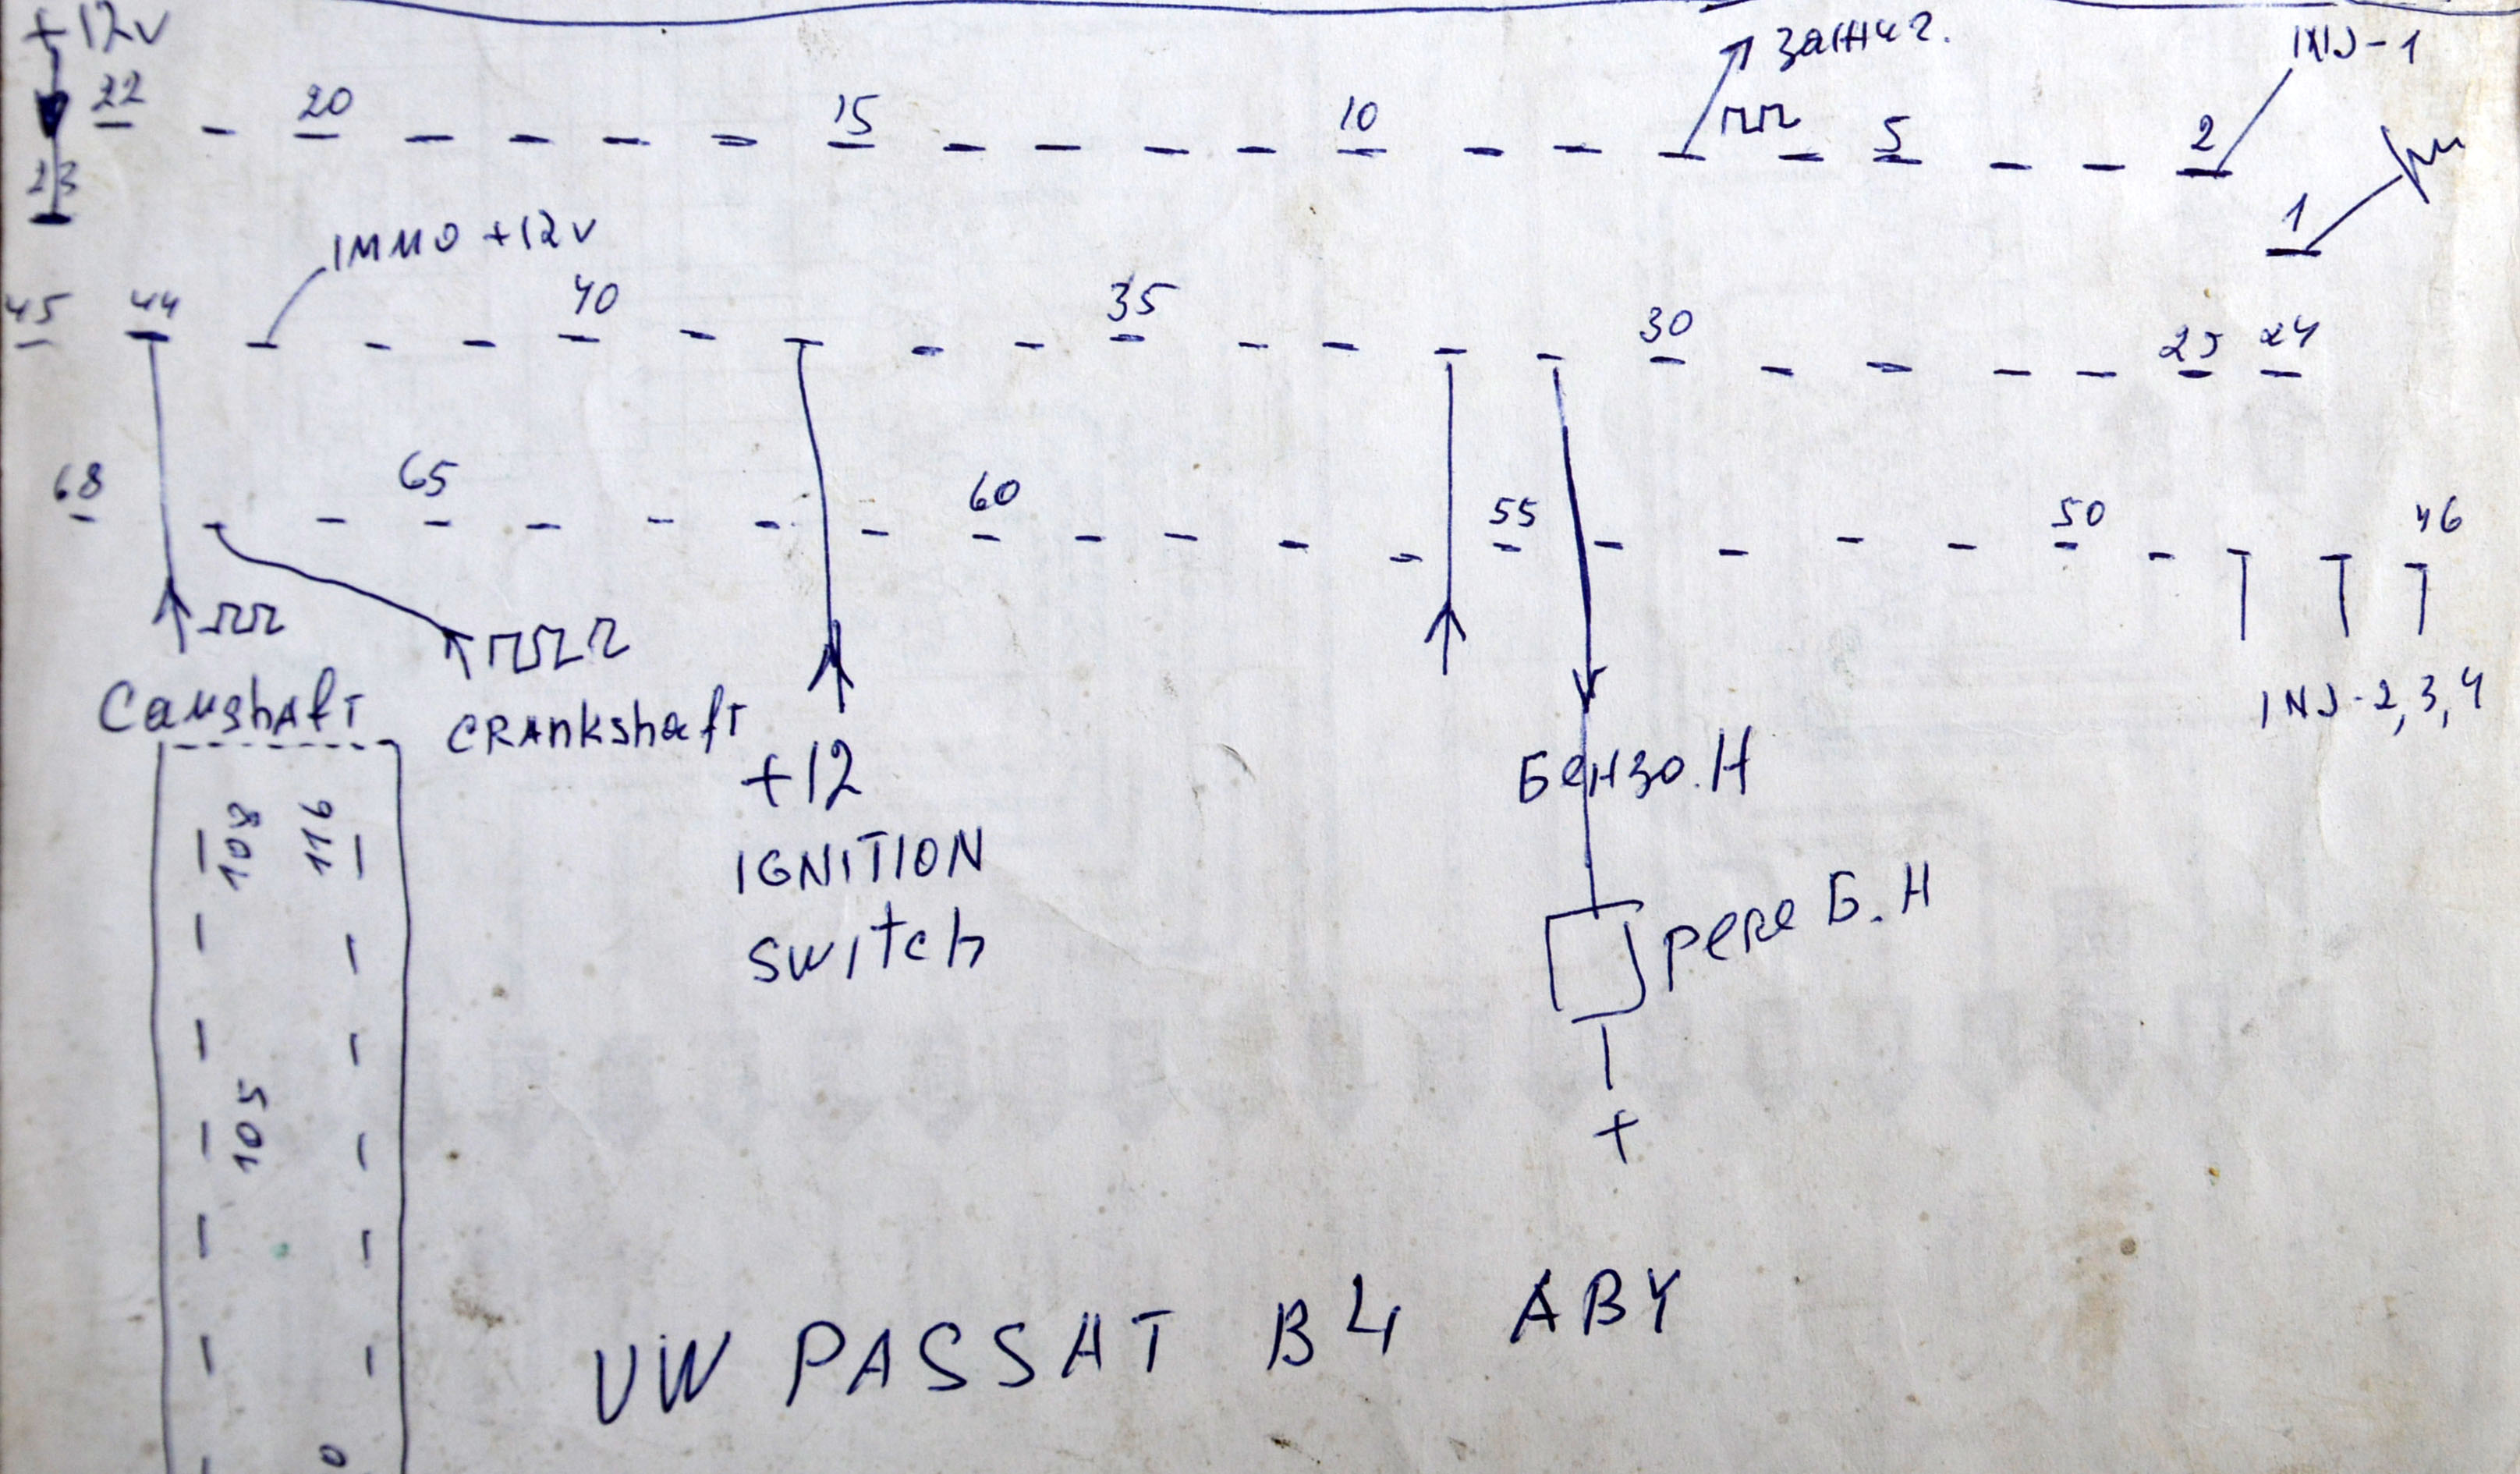 +12v
зажиг.
INJ-1
22 20 15 10 5 2
23
1
IMMO +12v
45 44 40 35 30 25 24
68 65 60 55 50 46
Camshaft
CRANkshaft
+12
IGNITION
Switch
Бензо.Н
INJ-2,3,4
реле Б.Н
+
108 116
105
VW PASSAT B4 ABY